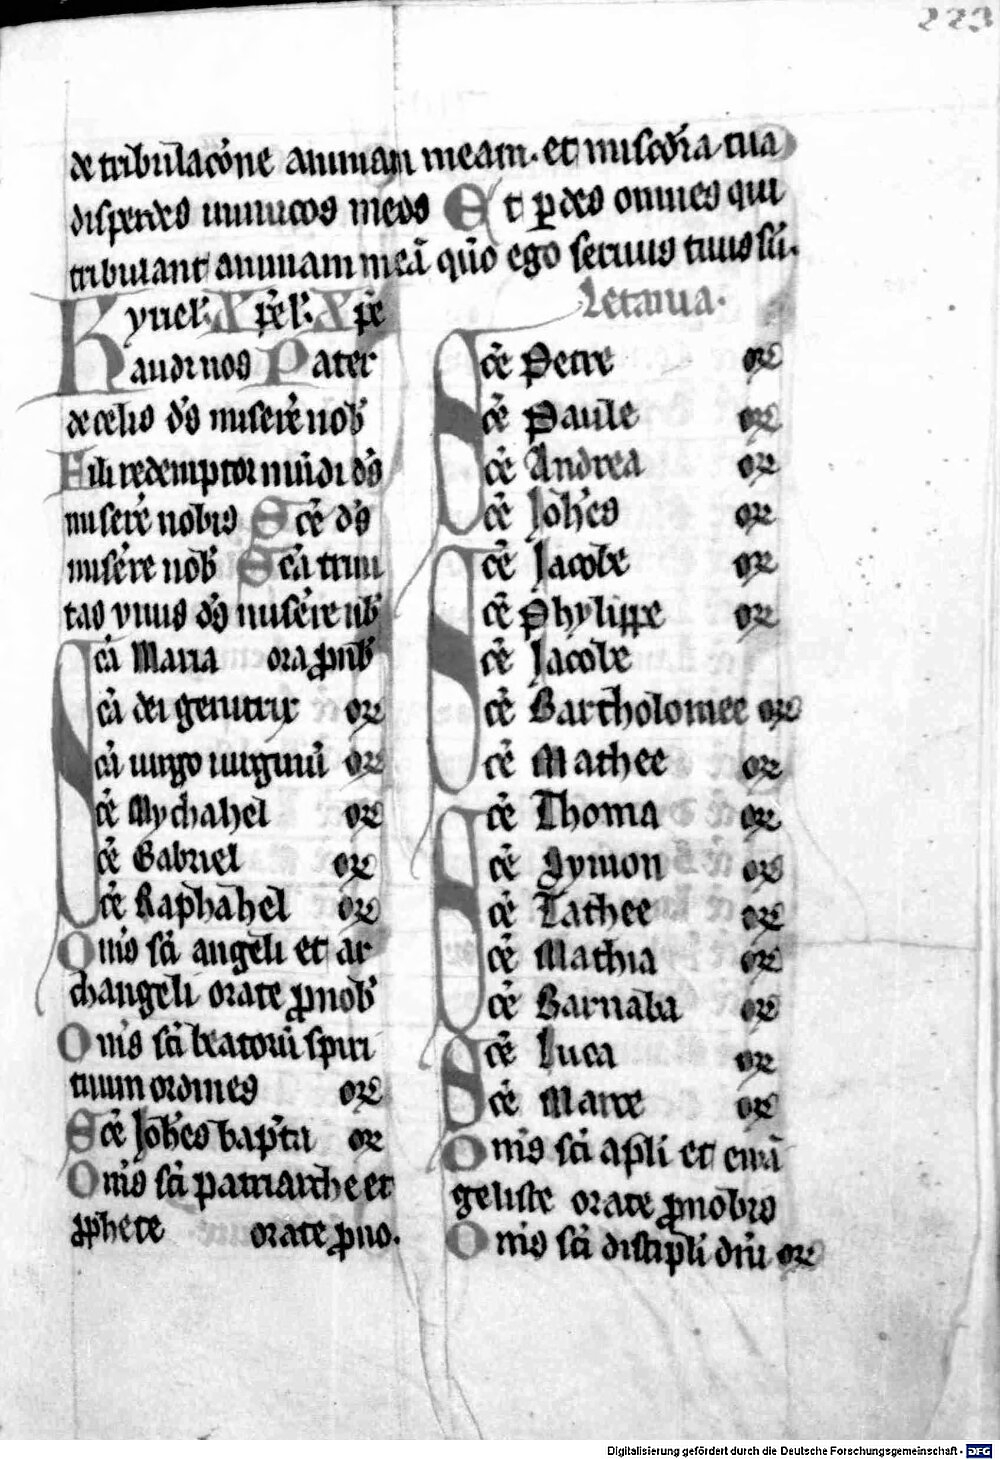 223
de tribulacõne animam meam. et misc̄dia tua
disperdes inimicos meos Et ꝑdes omnes qui
tribulant animam meā qm̄o ego seruus tuus sū.
Kyriel. Xp̄el. Xp̄e
audi nos Pater
de celis ds̄ miserē nob̄
Fili redemptor mūdi ds̄
miserē nobis Scē ds̄
miserē nob̄ Scā trini
tas vnus ds̄ miserē nb̄
Scā Maria ora ꝓ nb̄
Scā dei genitrix or̄
Scā uirgo uirginū or̄
Scē Mychahel or̄
Scē Gabriel or̄
Scē Raphahel or̄
Om̄s sc̄i angeli et ar
changeli orate ꝓ nob̄
Om̄s sc̄i beatorū spiri
tuum ordines or̄
Scē Joh̄es bapt̄a or̄
Om̄s sc̄i patriarche et
ꝓphete orate ꝓ no.
Letania.
Scē Petre or̄
Scē Paule or̄
Scē Andrea or̄
Scē Joh̄es or̄
Scē Jacobe or̄
Scē Phylippe or̄
Scē Jacobe
Scē Bartholomee or̄
Scē Mathee or̄
Scē Thoma or̄
Scē Symon or̄
Scē Tathee or̄
Scē Mathia or̄
Scē Barnaba or̄
Scē Luca or̄
Scē Marce or̄
Om̄s sc̄i apl̄i et ewā
geliste orate ꝓ nobis
Om̄s sc̄i discipl̄i dn̄i or̄
Digitalisierung gefördert durch die Deutsche Forschungsgemeinschaft - DFG